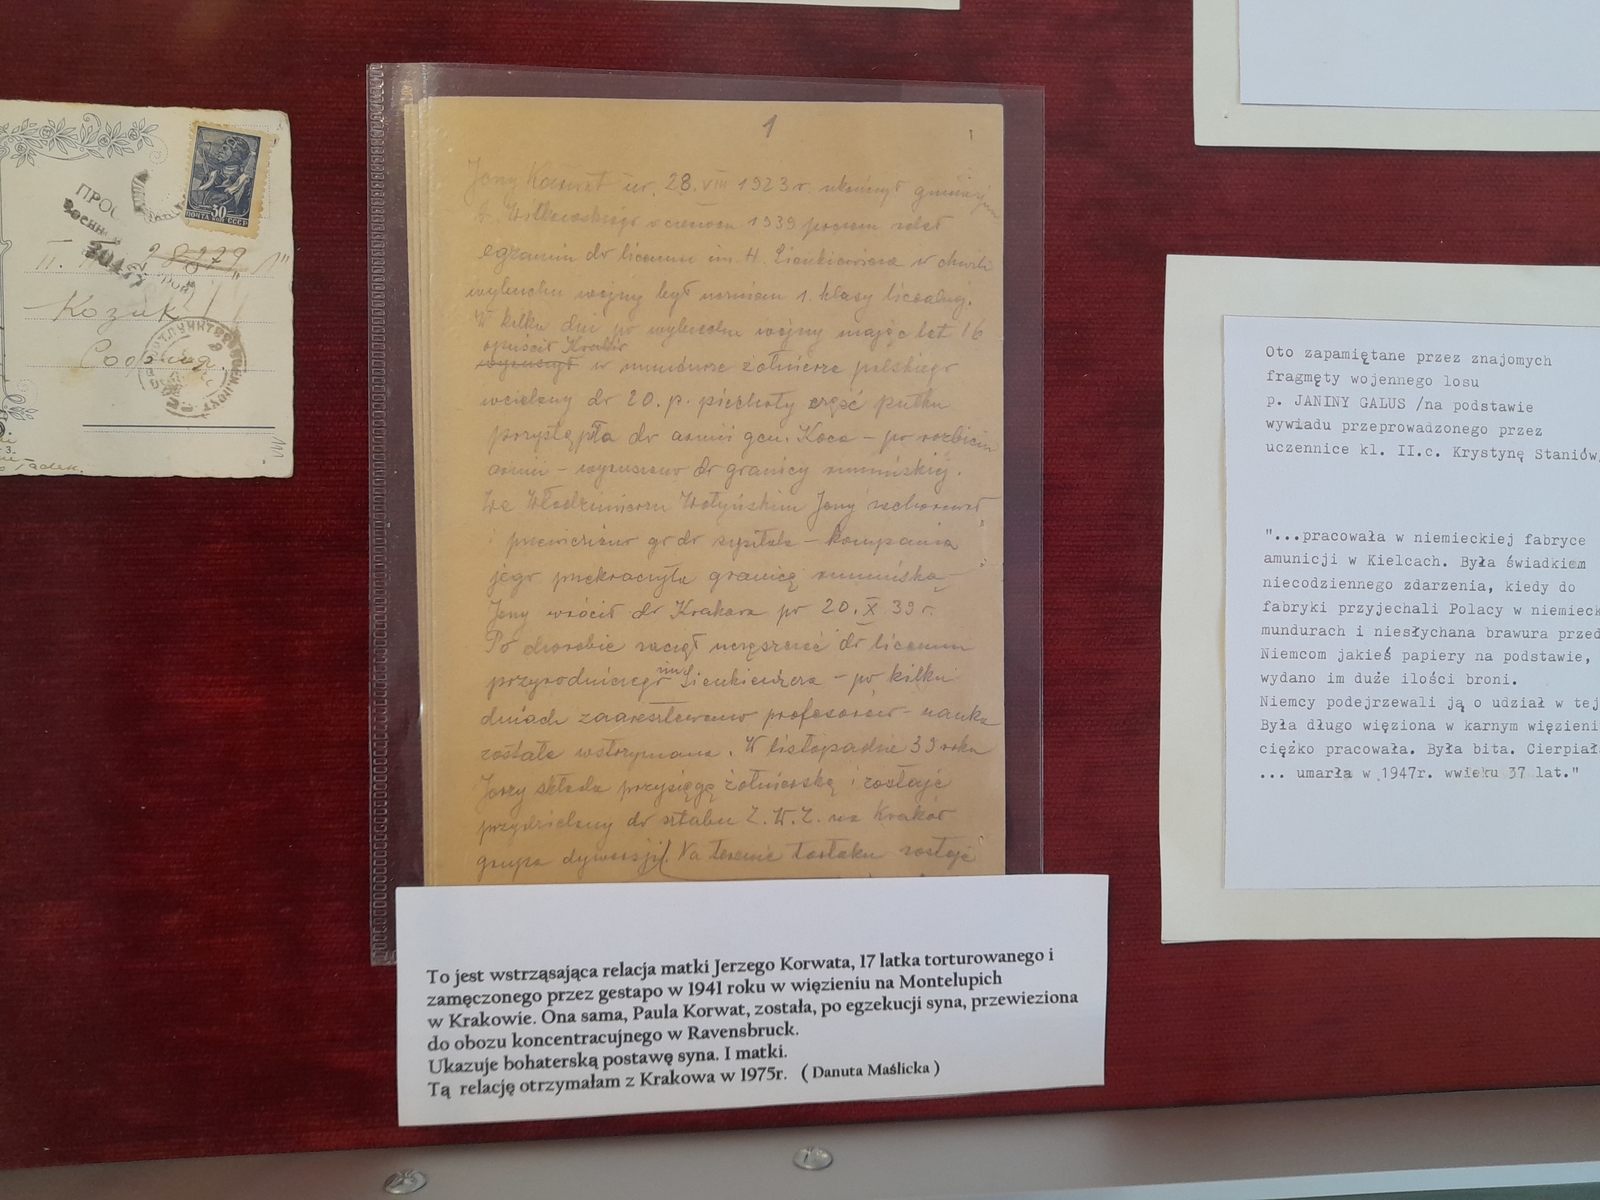 ПОЧТА СССР
50
28279
Козик
1
Jerzy Korwat ur. 28. VIII 1923 r. ukończył gimnazjum
b. Witkowskiego w czerwcu 1939 poczem zdał
egzamin do liceum im. H. Sienkiewicza w chwili
wybuchu wojny był uczniem 1. klasy licealnej.
W kilka dni po wybuchu wojny mając lat 16
opuścił Kraków
wyruszył w mundurze żołnierza polskiego
wcielony do 20. p. piechoty część pułku
przystąpiła do armii gen. Koca - po rozbiciu
armii - wyruszono do granicy rumuńskiej.
We Włodzimierzu Wołyńskim Jerzy zachorował
i przewieziono go do szpitala - kompania
jego przekroczyła granicę rumuńską -
Jerzy wrócił do Krakowa po 20. X 39 r.
Po chorobie zaczął uczęszczać do liceum
przyrodniczego im. Sienkiewicza - po kilku
dniach zaaresztowano profesorów - nauka
została wstrzymana. W listopadzie 39 roku
Jerzy składa przysięgę żołnierską i zostaje
przydzielony do sztabu Z. W. Z. na Kraków
grupa dywersji. Na terenie tartaku zostaje
To jest wstrząsająca relacja matki Jerzego Korwata, 17 latka torturowanego i
zamęczonego przez gestapo w 1941 roku w więzieniu na Montelupich
w Krakowie. Ona sama, Paula Korwat, została, po egzekucji syna, przewieziona
do obozu koncentracujnego w Ravensbruck.
Ukazuje bohaterską postawę syna. I matki.
Tą relację otrzymałam z Krakowa w 1975r. ( Danuta Maślicka )
Oto zapamiętane przez znajomych
fragmęty wojennego losu
p. JANINY GALUS /na podstawie
wywiadu przeprowadzonego przez
uczennice kl. II.c. Krystynę Staniów
"...pracowała w niemieckiej fabryce
amunicji w Kielcach. Była świadkiem
niecodziennego zdarzenia, kiedy do
fabryki przyjechali Polacy w niemieck
mundurach i niesłychana brawura przed
Niemcom jakieś papiery na podstawie,
wydano im duże ilości broni.
Niemcy podejrzewali ją o udział w tej
Była długo więziona w karnym więzieni
ciężko pracowała. Była bita. Cierpiał
... umarła w 1947r. wwieku 37 lat."